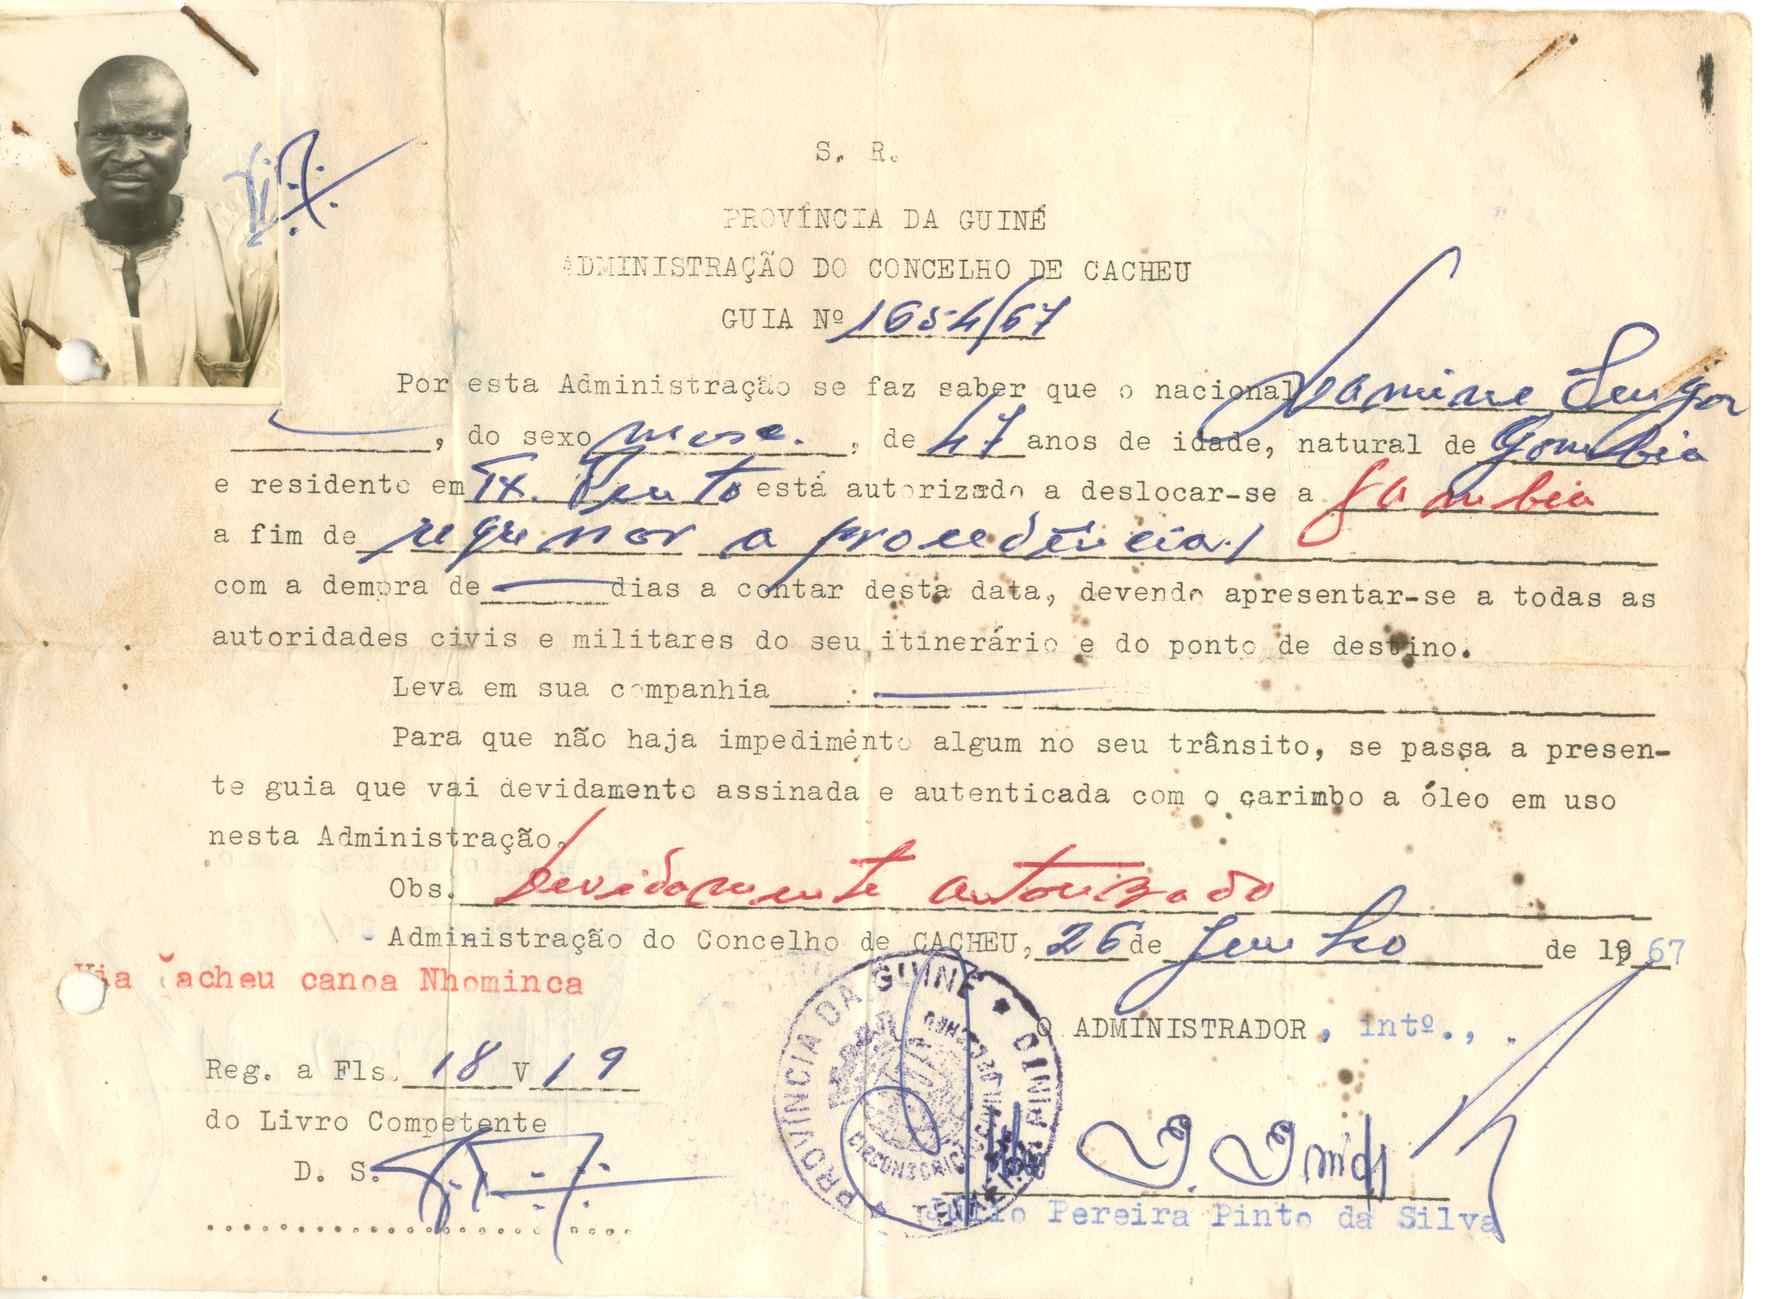 S. R.
PROVÍNCIA DA GUINÉ
ADMINISTRAÇÃO DO CONCELHO DE CACHEU
GUIA Nº 1654/67
Por esta Administração se faz saber que o nacional Lamine Sengor
, do sexo masc. , de 47 anos de idade, natural de Gambia
e residente em está autorizado a deslocar-se a Gambia
a fim de regressar a procedência
com a demora de dias a contar desta data, devendo apresentar-se a todas as
autoridades civis e militares do seu itinerário e do ponto de destino.
Leva em sua companhia
Para que não haja impedimento algum no seu trânsito, se passa a presen-
te guia que vai devidamente assinada e autenticada com o carimbo a óleo em uso
nesta Administração.
Obs. Devidamente autorizado
Administração do Concelho de CACHEU, 26 de Junho de 1967
Via Cacheu canoa Nhominca
PROVINCIA DA GUINÉ
O ADMINISTRADOR, intº.,
Reg. a Fls. 18 V 19
do Livro Competente
D. S.
Júlio Pereira Pinto da Silva